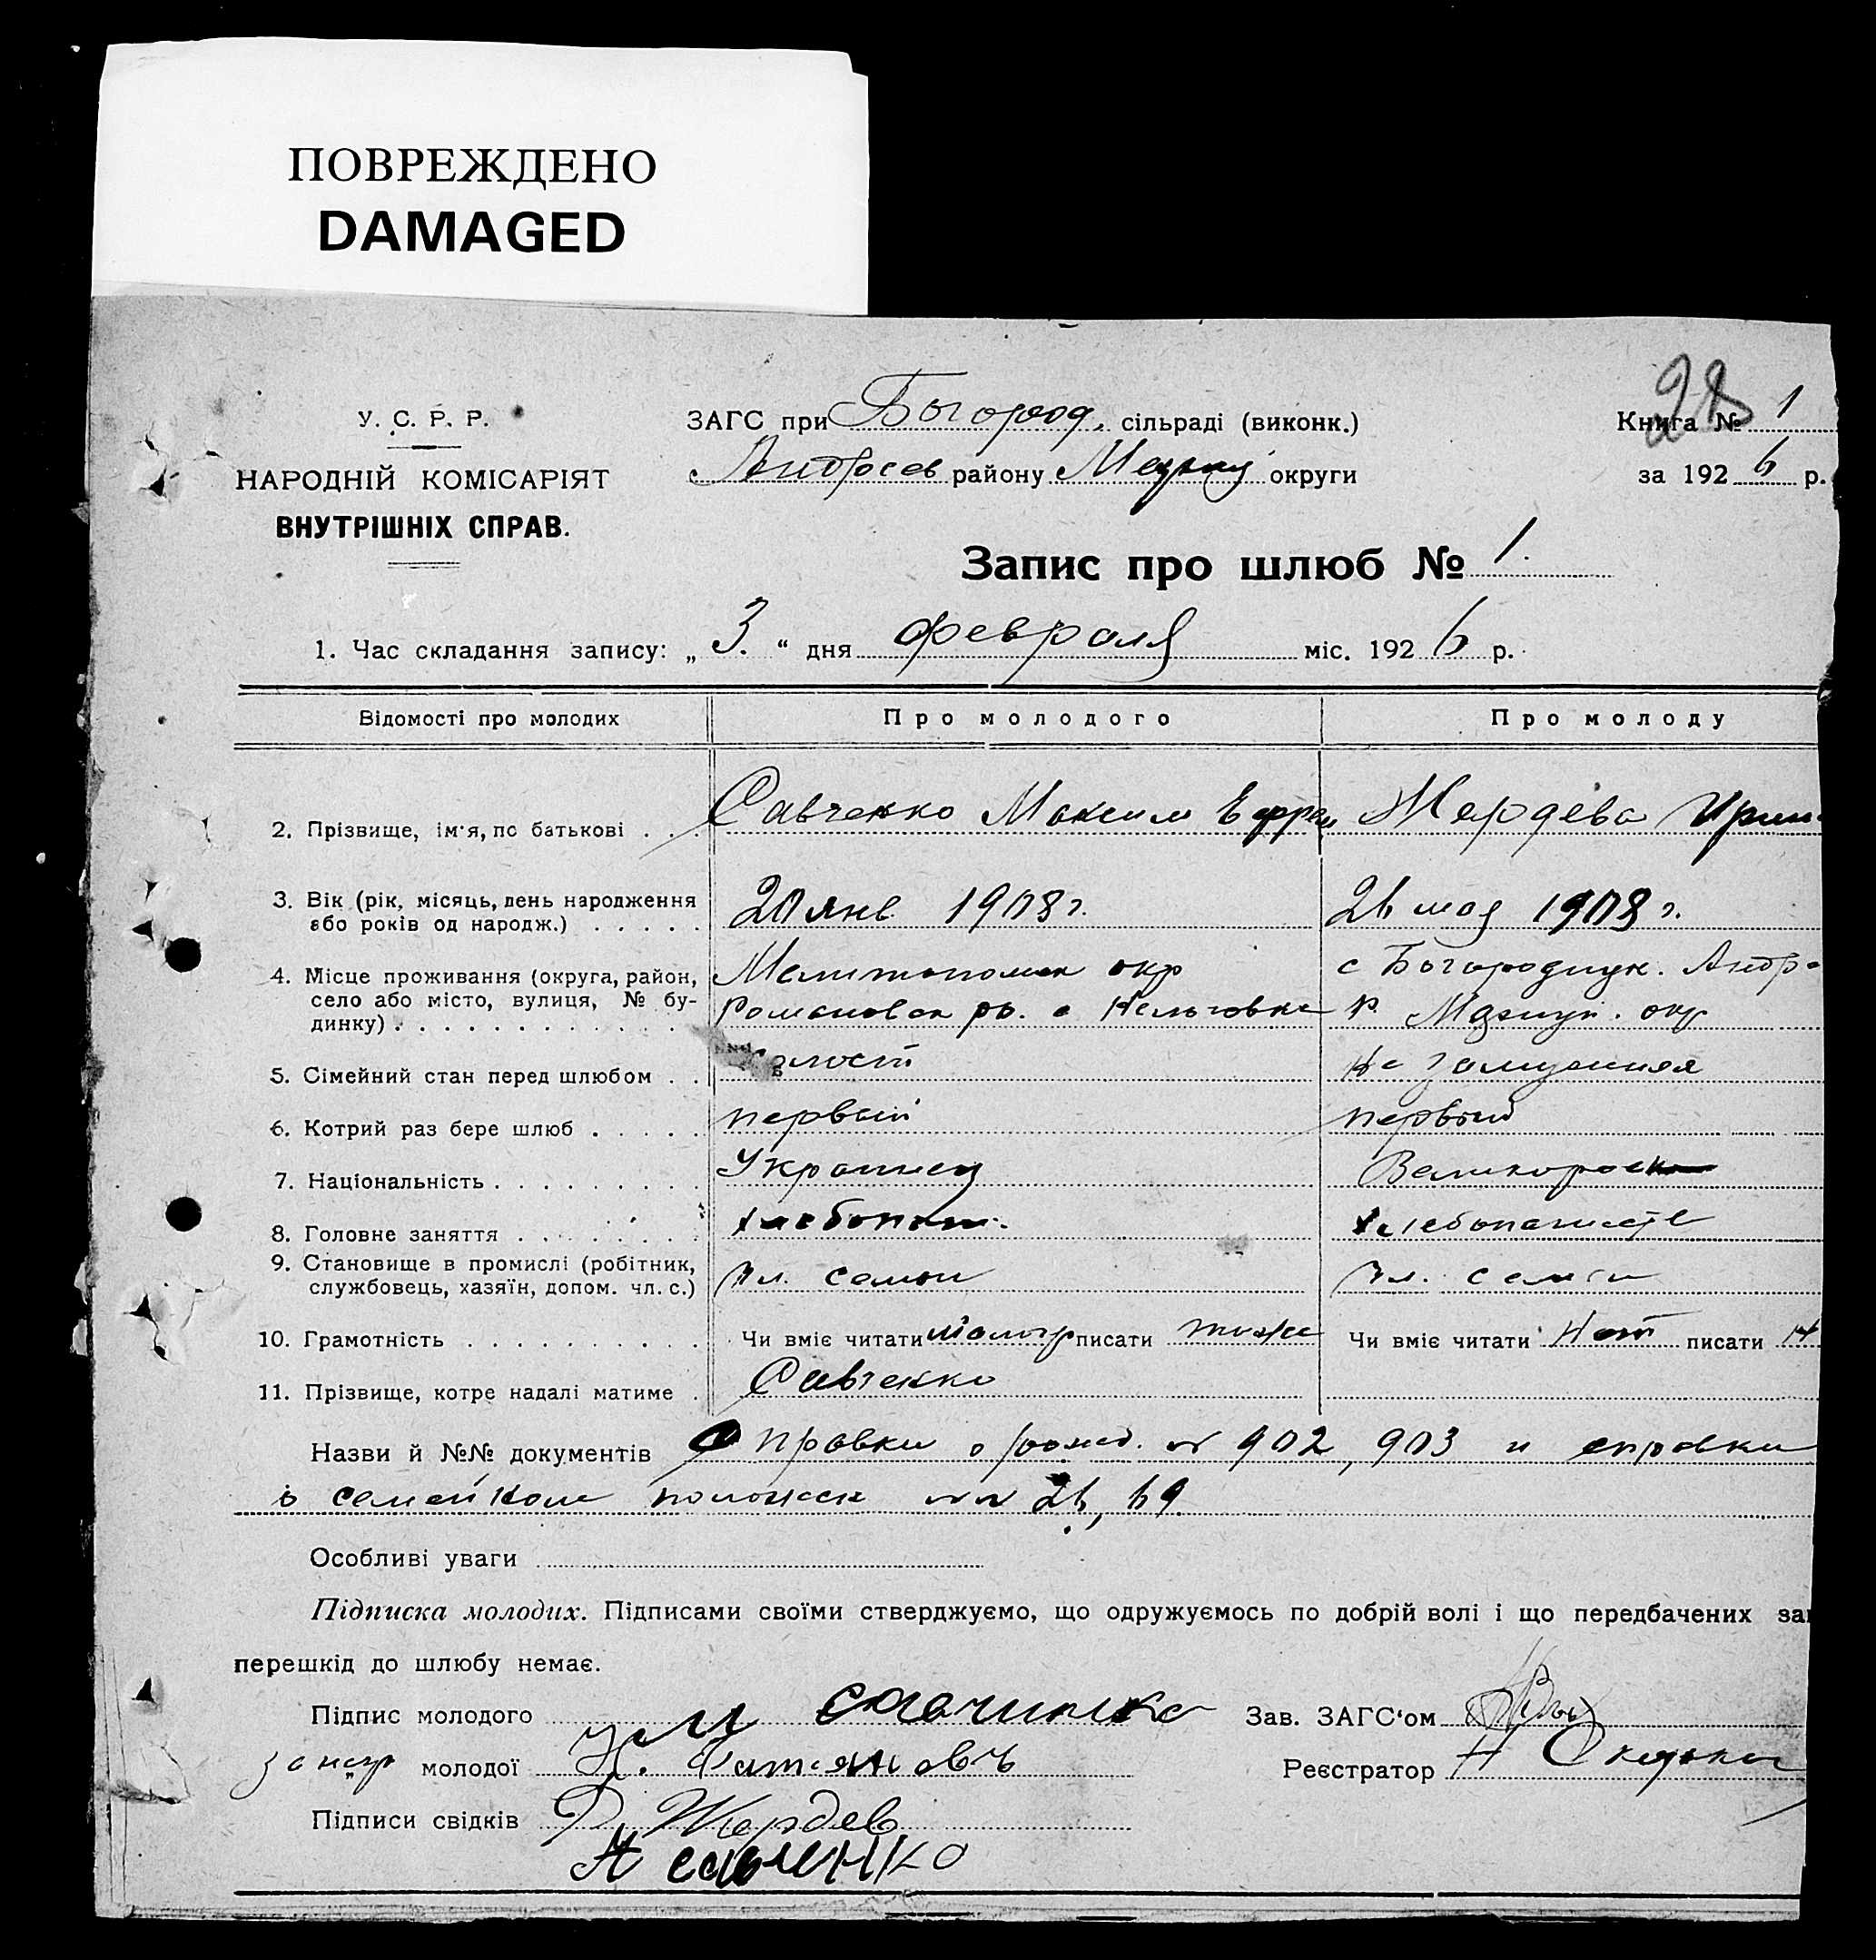 ПОВРЕЖДЕНО
DAMAGED
28
У. С. Р. Р.
НАРОДНІЙ КОМІСАРІЯТ
ВНУТРІШНІХ СПРАВ.
ЗАГС при Богород. сільраді (виконк.)
Андреев району округи
Книга № 1
за 1926 р.
Запис про шлюб № 1.
1. Час складання запису: „3.“ дня февраля міс. 1926 р.
Відомості про молодих Про молодого Про молоду
2. Прізвище, ім'я, по батькові . . . Савченко Максим Ефрем Жердева Ирин
3. Вік (рік, місяць, день народження або років од народж.) . . . . . 20 янв. 1908 г. 26 мая 1908 г.
4. Місце проживання (округа, район, село або місто, вулиця, № будинку) . . . Мелитопольск окр с Богородицк. Андр
Романовск ра. с р. окр
5. Сімейний стан перед шлюбом . . Не замужняя
6. Котрий раз бере шлюб . . . . . первый первый
7. Національність . . . . . . . . . Украинец Великоросс
8. Головне заняття . . . . . . . . хлебопаш. хлебопашеств
9. Становище в промислі (робітник, службовець, хазяїн, допом. чл. с.) чл. семьи чл. семьи
10. Грамотність . . . . . . . . . . Чи вміє читати малогр писати тоже Чи вміє читати Нет писати Н
11. Прізвище, котре надалі матиме . Савченко
Назви й №№ документів Справки о рожд. № 902, 903 и справки
о семейном положен №№ 26, 69
Особливі уваги
Підписка молодих. Підписами своїми стверджуємо, що одружуємось по добрій волі і що передбачених за
перешкід до шлюбу немає.
Підпис молодого М Савчинко Зав. ЗАГС'ом
за негр молодої Реєстратор Н
Підписи свідків Жердев
А Савченко